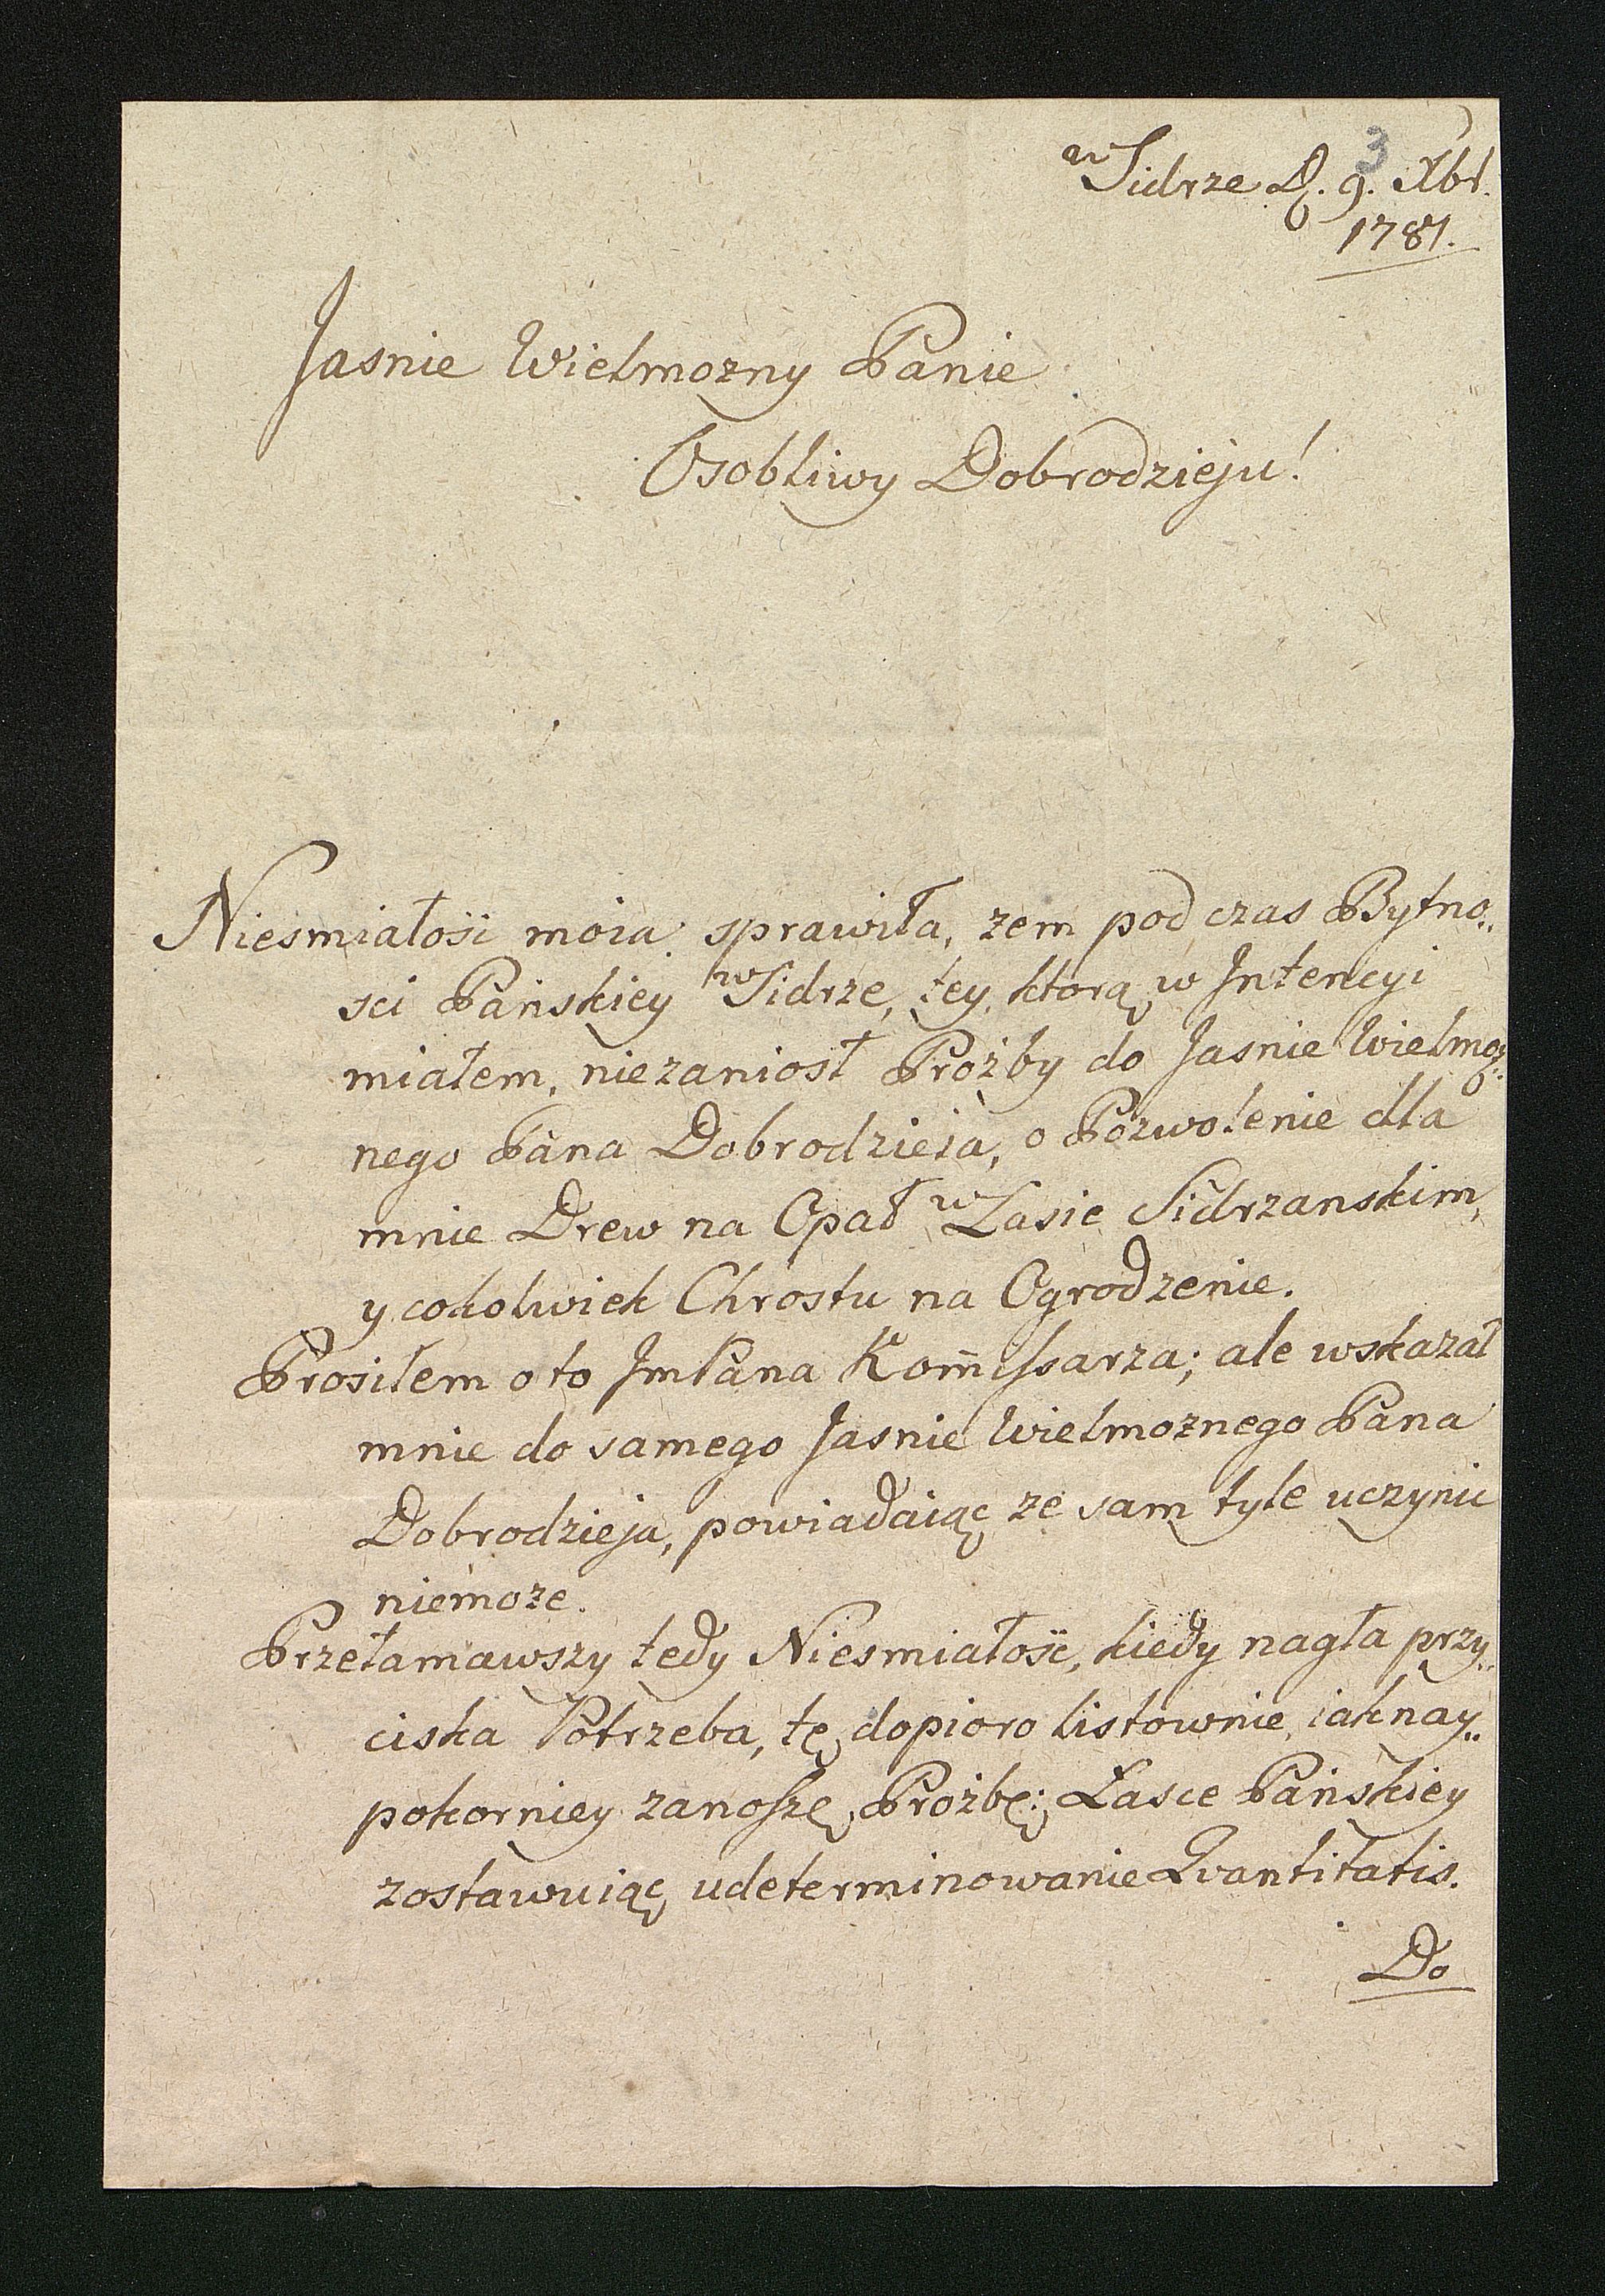 3
w Sidrze D. 9. Xbr.
1781.
Jasnie Wielmozny Panie
Osobliwy Dobrodzieju!
Niesmiałość moia sprawiła, zem pod czas Bytno„
sci Pańskiey w Sidrze, tey, ktorą w Intencyi
miałem, niezaniosł Prożby do Jasnie Wielmoz„
nego Pana Dobrodzieia, o Pozwolenie dla
mnie Drew na Opał w Lasie Sidrzanskim,
y cokolwiek Chrostu na Ogrodzenie.
Prosiłem oto ImPana Kom̃issarza; ale wskazał
mnie do samego Jasnie Wielmoznego Pana
Dobrodzieja, powiadaiąc ze sam tyle uczynic
niemoze.
Przełamawszy tedy Niesmiałość, kiedy nagła przy„
ciska Potrzeba, tę dopioro listownie iaknay„
pokorniey zanoszę Prożbę: Łasce Pańskiey
zostawuiąc udeterminowanie Qvantitatis.
Do